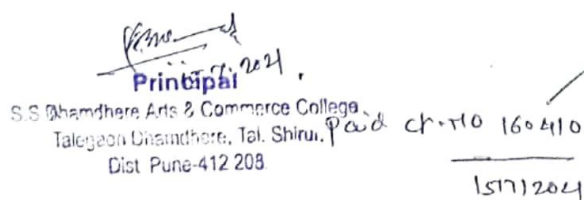 Principal
S.S Dhamdhere Arts & Commerce College
Talegaon Dhamdhere, Tal. Shirur,
Dist Pune-412 208
Paid ch.no 160410
15/7/2021